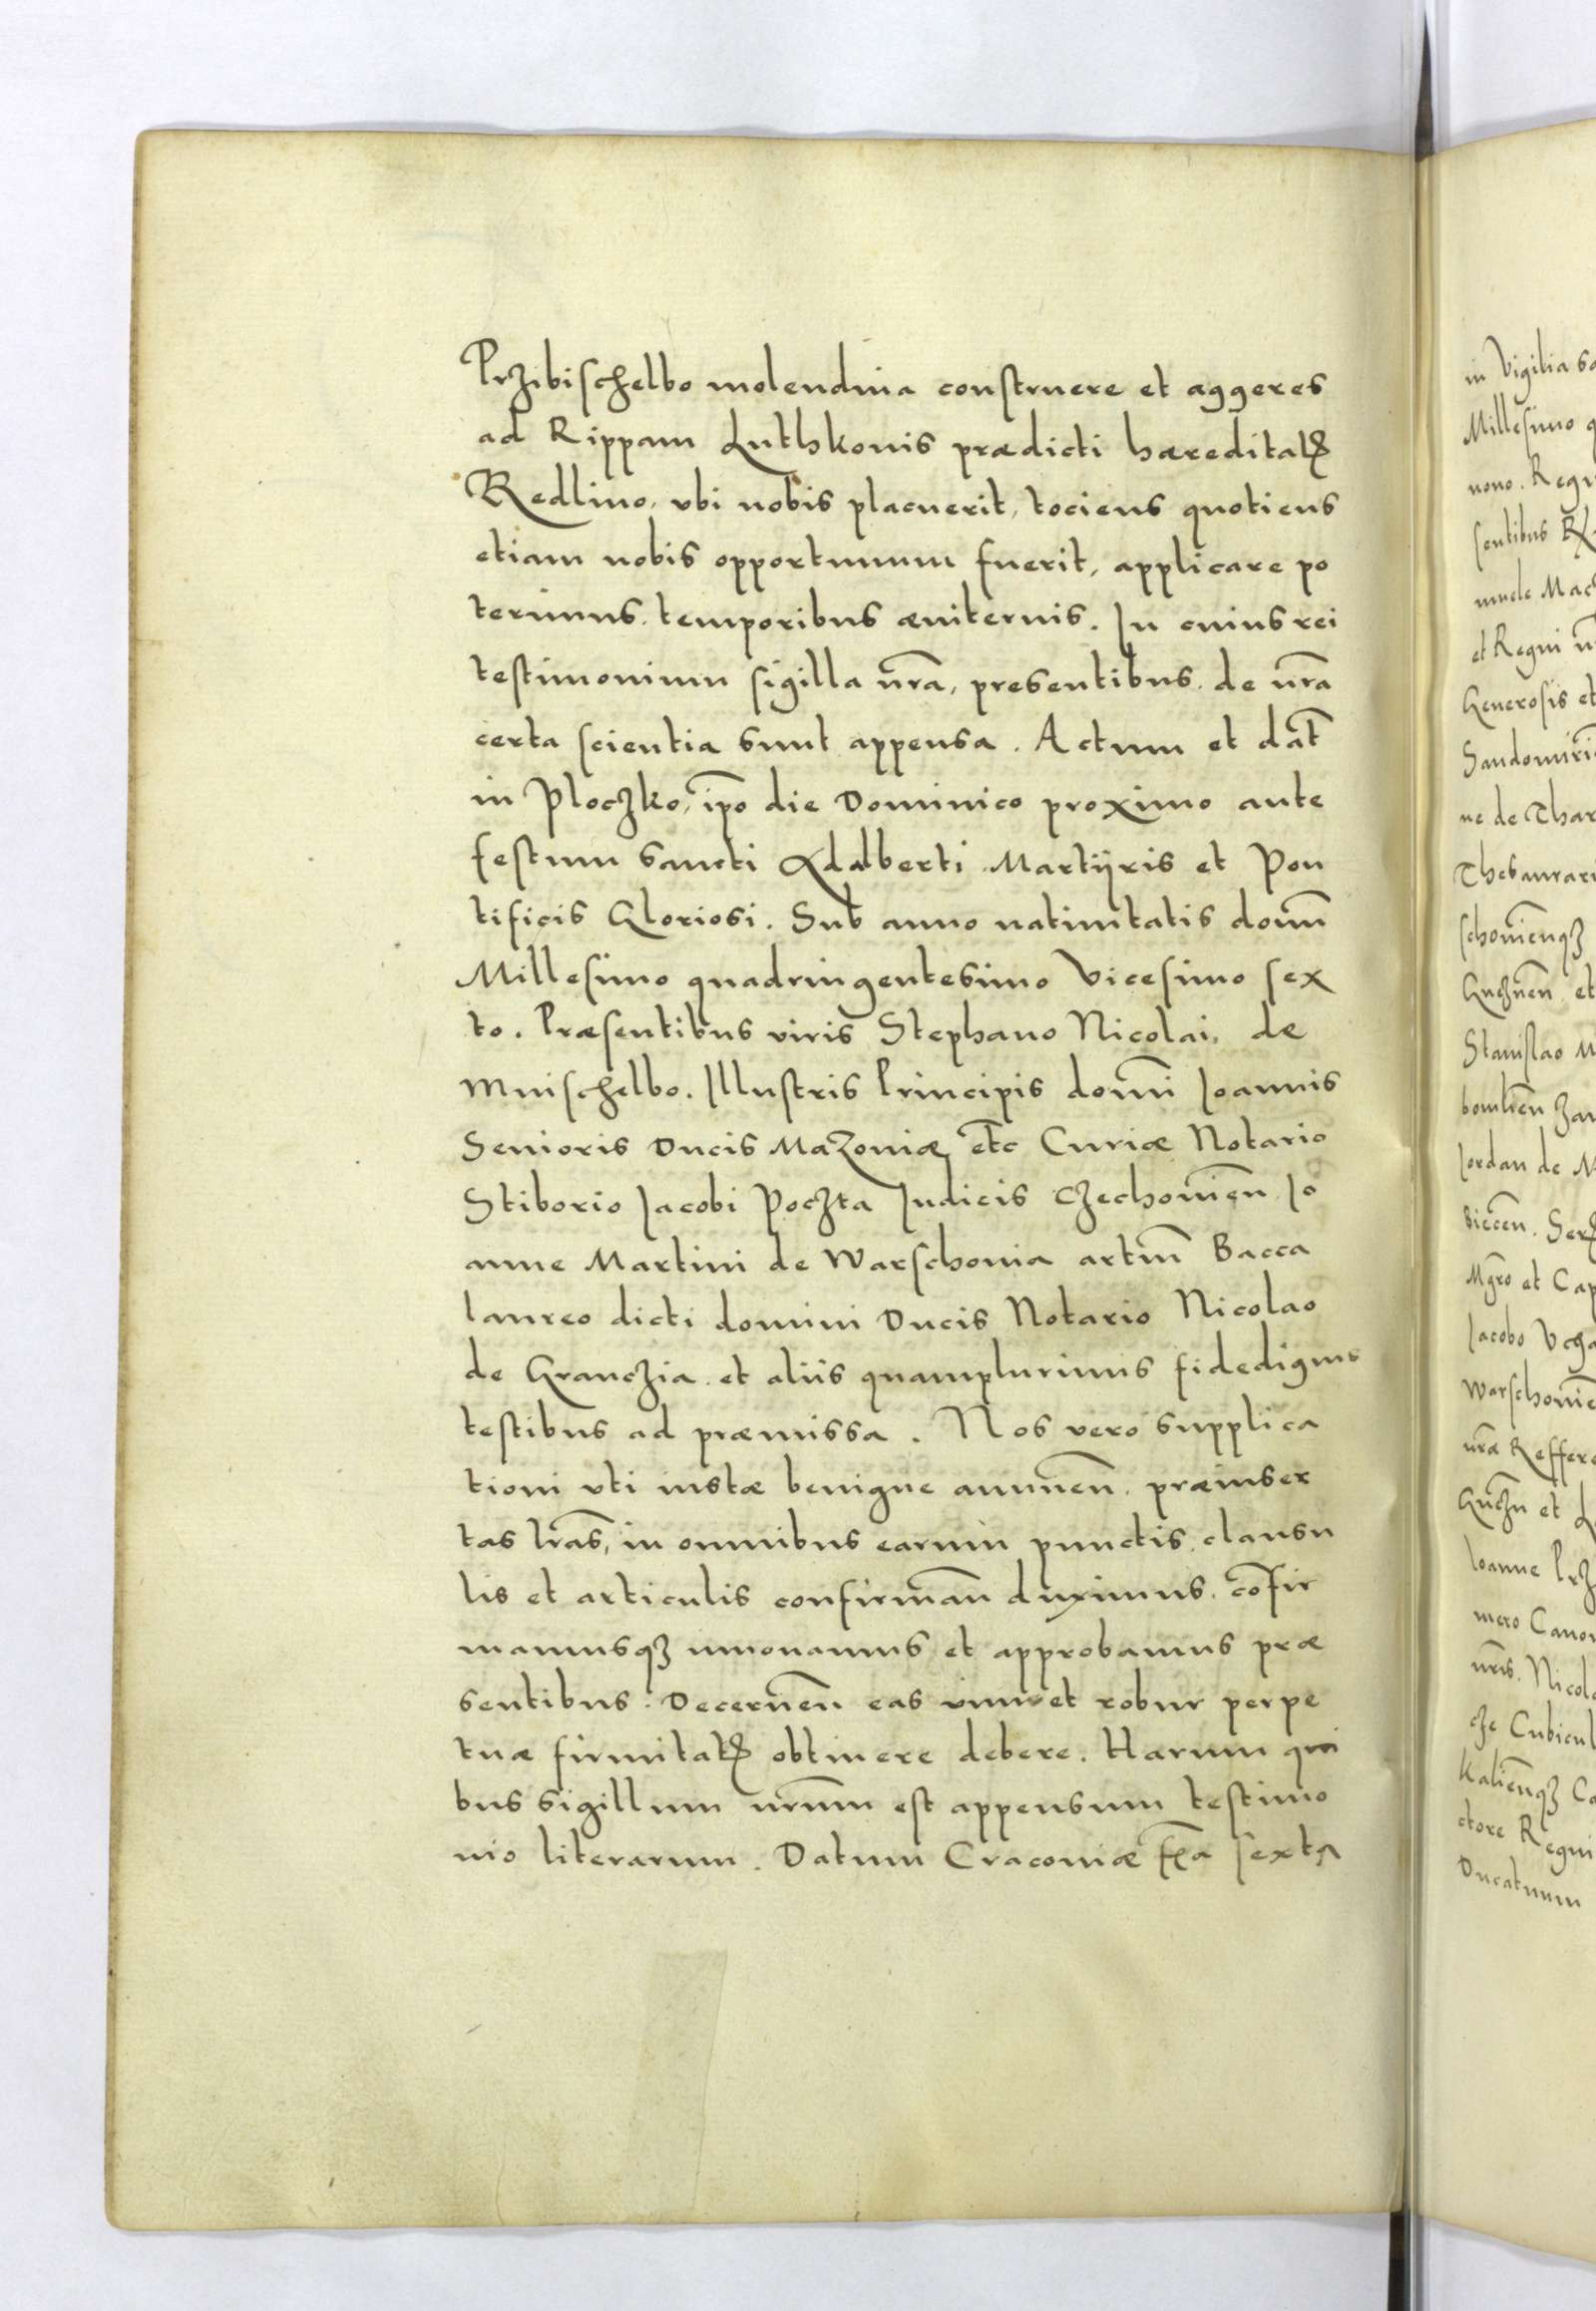 Przibischelbo molendina construere et aggeres
ad Rippam Luthkonis prædicti hæreditatꝭ
Redlino, vbi nobis placuerit, tociens quotiens
etiam nobis opportunum fuerit, applicare po
terimus. temporibus æuiternis. In cuius rei
testimonium sigilla nr̃a, presentibus. de nr̃a
certa scientia sunt appensa. Actum et dat̃
in Ploczko, ip̃o die Dominico proximo ante
festum sancti Adalberti Martÿris et Pon
tificis Gloriosi. Sub anno natiuitatis domĩ
Millesimo quadringentesimo Vicesimo sex
to. Præsentibus viris Stephano Nicolai, de
Mnischelbo. Illustris Principis domĩ Ioannis
Senioris Ducis Mazouiæ et̃c Curiæ Notario
Stiborio Iacobi Poczta Iudicis Czechouieñ Io
anne Martini de Warschouia artiũ Bacca
laureo dicti domini Ducis Notario Nicolao
de Granczia et aliis quamplurimis fidedignis
testibus ad præmissa. Nos vero supplica
tioni vti iustæ benigne annueñ. præinser
tas lr̃as, in omnibus earum punctis, clausu
lis et articulis confirmañ duximus. cõfir
mamusqꝫ innouamus et approbamus præ
sentibus. Decerneñ eas vim et robur perpe
tuæ firmitatꝭ obtinere debere. Harum qui
bus sigillum nr̃um est appensum testimo
nio literarum. Datum Cracouiæ fr̃ia sexta
in Vigilia
Millesimo
nono.
et Regni
Generosis et
ne de
et
Stanislao
Iordan de
et
Iacobo
et
Ioanne
Ducatuum